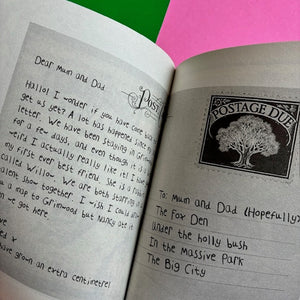 Dear Mum and Dad
Hallo! I wonder if you have come
get us yet? A lot has happened since my
letter. We have been staying in Grimwood
for a few days, and even though it is
weird I actually really like it! I have
my first ever best friend. She is a
called Willow. We are both starring in
talent show together. I wish I could
a map to Grimwood but Nancy ate it
we got here.
have grown an extra centimetre!
POSTAGE DUE
To: Mum and Dad (Hopefully)
The Fox Den
Under the holly bush
In the Massive Park
The Big City